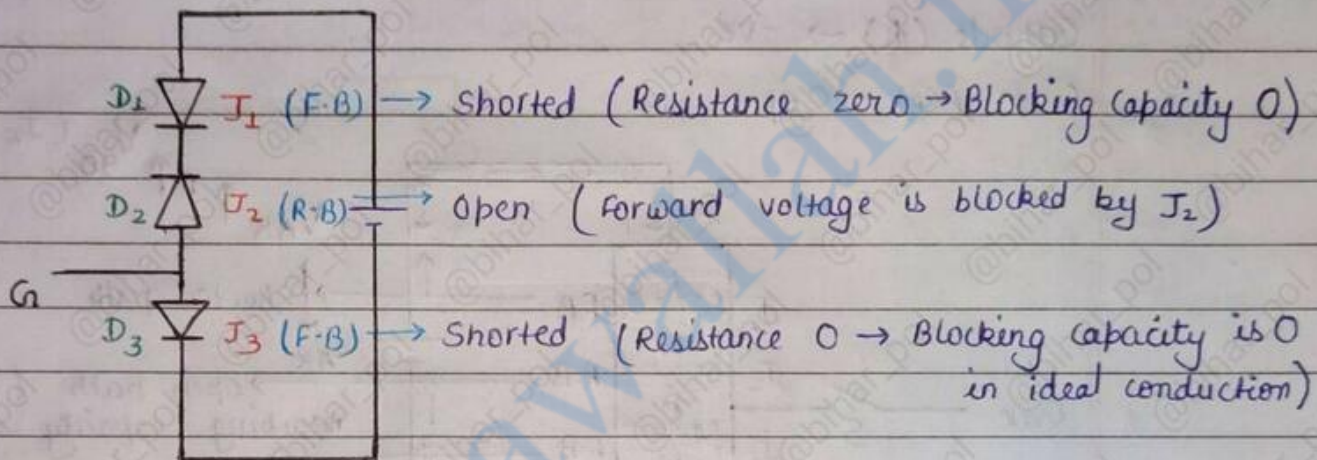 D1 J1 (F-B) → Shorted (Resistance zero → Blocking Capacity 0)
D2 J2 (R-B) → Open (Forward voltage is blocked by J2)
G
D3 J3 (F-B) → Shorted (Resistance 0 → Blocking capacity is 0
in ideal conduction)
@bihar_pol
wallah